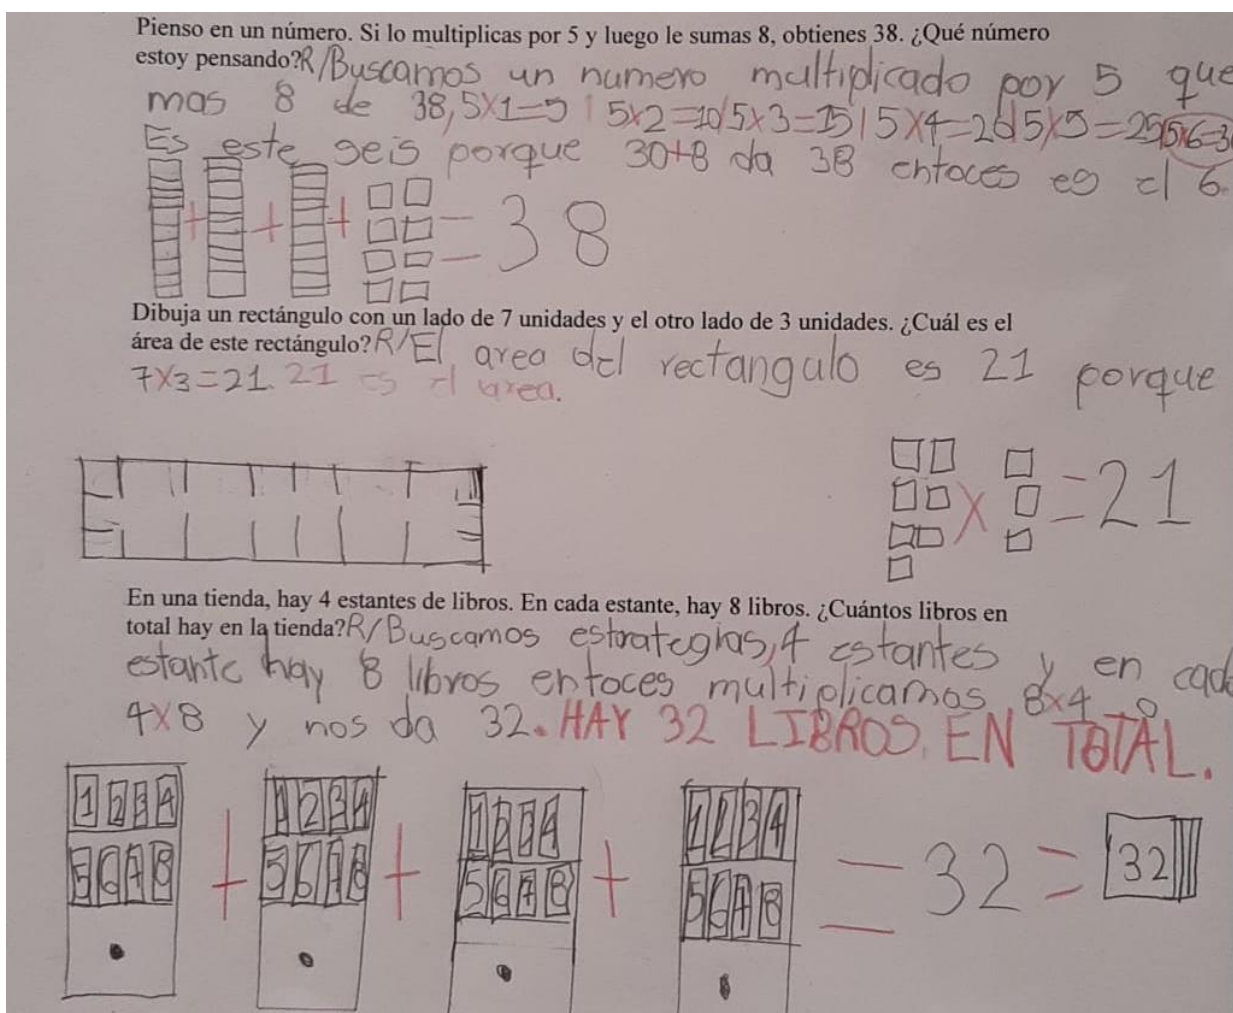 Pienso en un número. Si lo multiplicas por 5 y luego le sumas 8, obtienes 38. ¿Qué número
estoy pensando? R/Buscamos un numero multiplicado por 5 que
mas 8 de 38, 5x1=5 | 5x2=10 | 5x3=15 | 5x4=20 | 5x5=25 | 5x6=30
Es este seis porque 30+8 da 38 entoces es el 6.
+ + + = 38
Dibuja un rectángulo con un lado de 7 unidades y el otro lado de 3 unidades. ¿Cuál es el
área de este rectángulo? R/El area del rectangulo es 21 porque
7x3=21. 21 es el area.
x = 21
En una tienda, hay 4 estantes de libros. En cada estante, hay 8 libros. ¿Cuántos libros en
total hay en la tienda? R/Buscamos estrategias, 4 estantes y en cada
estante hay 8 libros entoces multiplicamos 8x4 o
4x8 y nos da 32. HAY 32 LIBROS EN TOTAL.
1 2 3 4 1 2 3 4 1 2 3 4 1 2 3 4
5 6 7 8 + 5 6 7 8 + 5 6 7 8 + 5 6 7 8 = 32 = 32